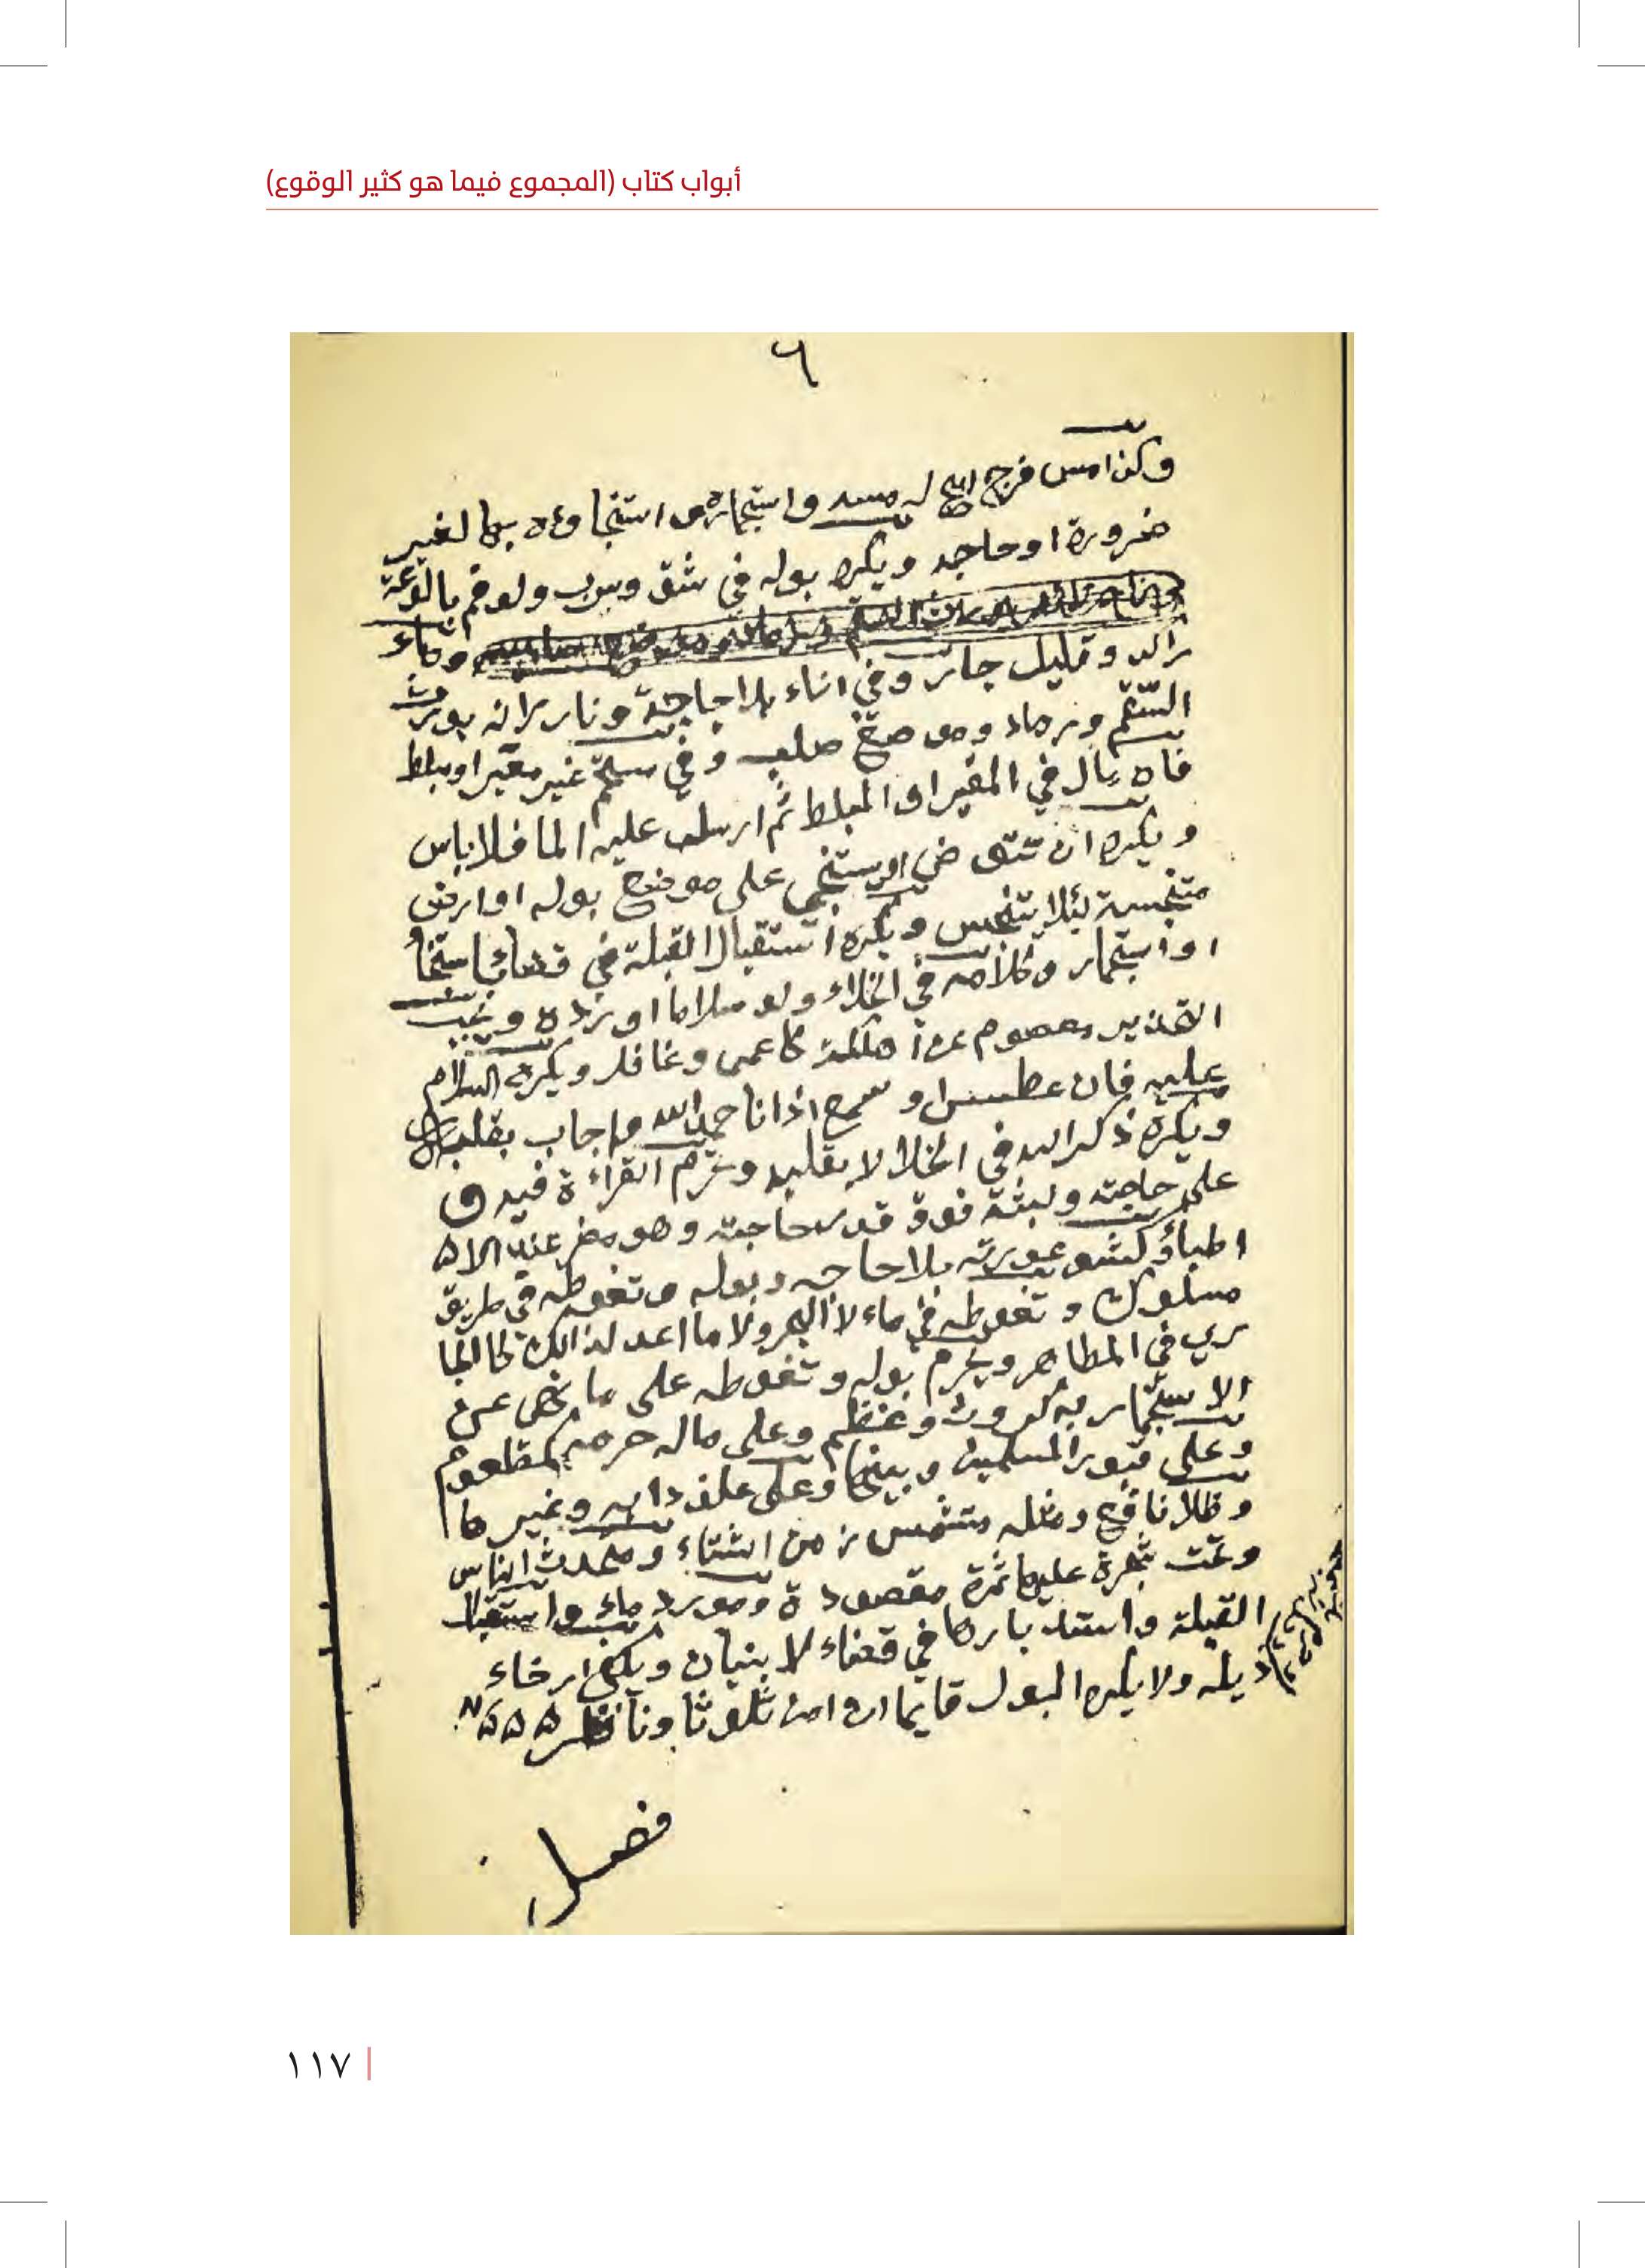 أبواب كتاب (المجموع فيما هو كثير الوقوع)
٦
وكذا مس فرج ابيح له مسه واستجماره واستنجاوءه بها لغير
ضرورة او حاجه ويكره بوله في شق وسرب ولو فم بالوعة
وماء
راكد وقليل جار وفي اناء بلا حاجة ونار لانه يورث
السقم ورماد وموضع صلب وفي مستحم غير مقير او مبلط
فان بال في المقير او المبلط ثم ارسل عليه الما فلا باس
ويكره ان يتوضى او يستنجي على موضع بوله او ارض
متنجسة لئلا يتنجس ويكره استقبال القبلة في فضا باستنجا
او استجمار وكلامه في الخلاء ولو سلاما او رده ويجب
التحذير معصوم عن هلكة كاعمى وغافل ويكره السلام
عليه فان عطس او سمع اذانا حمد الله واجاب بقلبه
ويكره ذكر الله في الخلا لا بقلبه وتحرم القراءة فيه و
على حاجته ولبثه فوق قدر حاجته وهو مضر عند الا
اطباء وكشف عورته بلا حاجه وبوله وتغوطه في طريق
مسلوك وتغوطه في ماء لا البحر ولا ما اعد لذالك كالجا
ري في المطاهر ويحرم بوله وتغوطه على ما نهى عن
الاستجمار به كروث وعظم وعلى ماله حرمه كمطعوم
وعلى قبور المسلمين وبينها وعلى علف دابه وغيرها
وظل نافع ومثله متشمس زمن الشتاء ومتحدث الناس
وتحت شجرة عليها ثمرة مقصودة ومورد ماء واستقبال
القبلة واستدبارها في فضاء لا بنيان ويكفي ارخاء
ذيله ولا يكره البول قايما ان امن تلوثا وناظر
فصل
١١٧